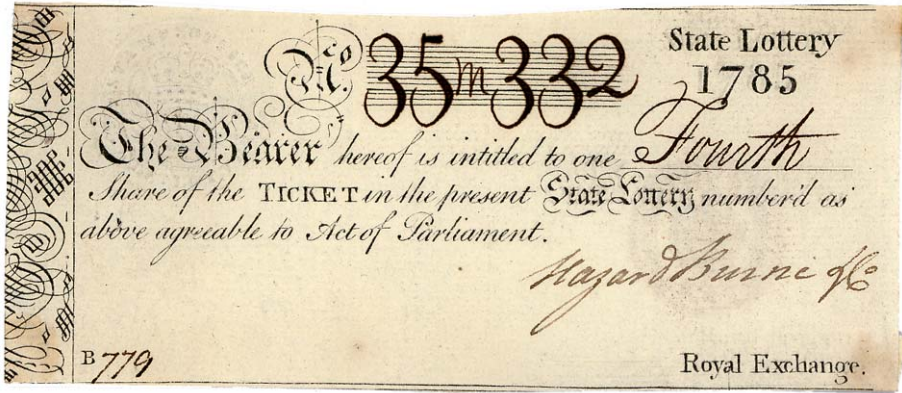 No. 35m332
State Lottery
1785
The Bearer hereof is intitled to one Fourth
Share of the TICKET in the present State Lottery number'd as
above agreeable to Act of Parliament.
Hazard Burne & Co
B 779
Royal Exchange.